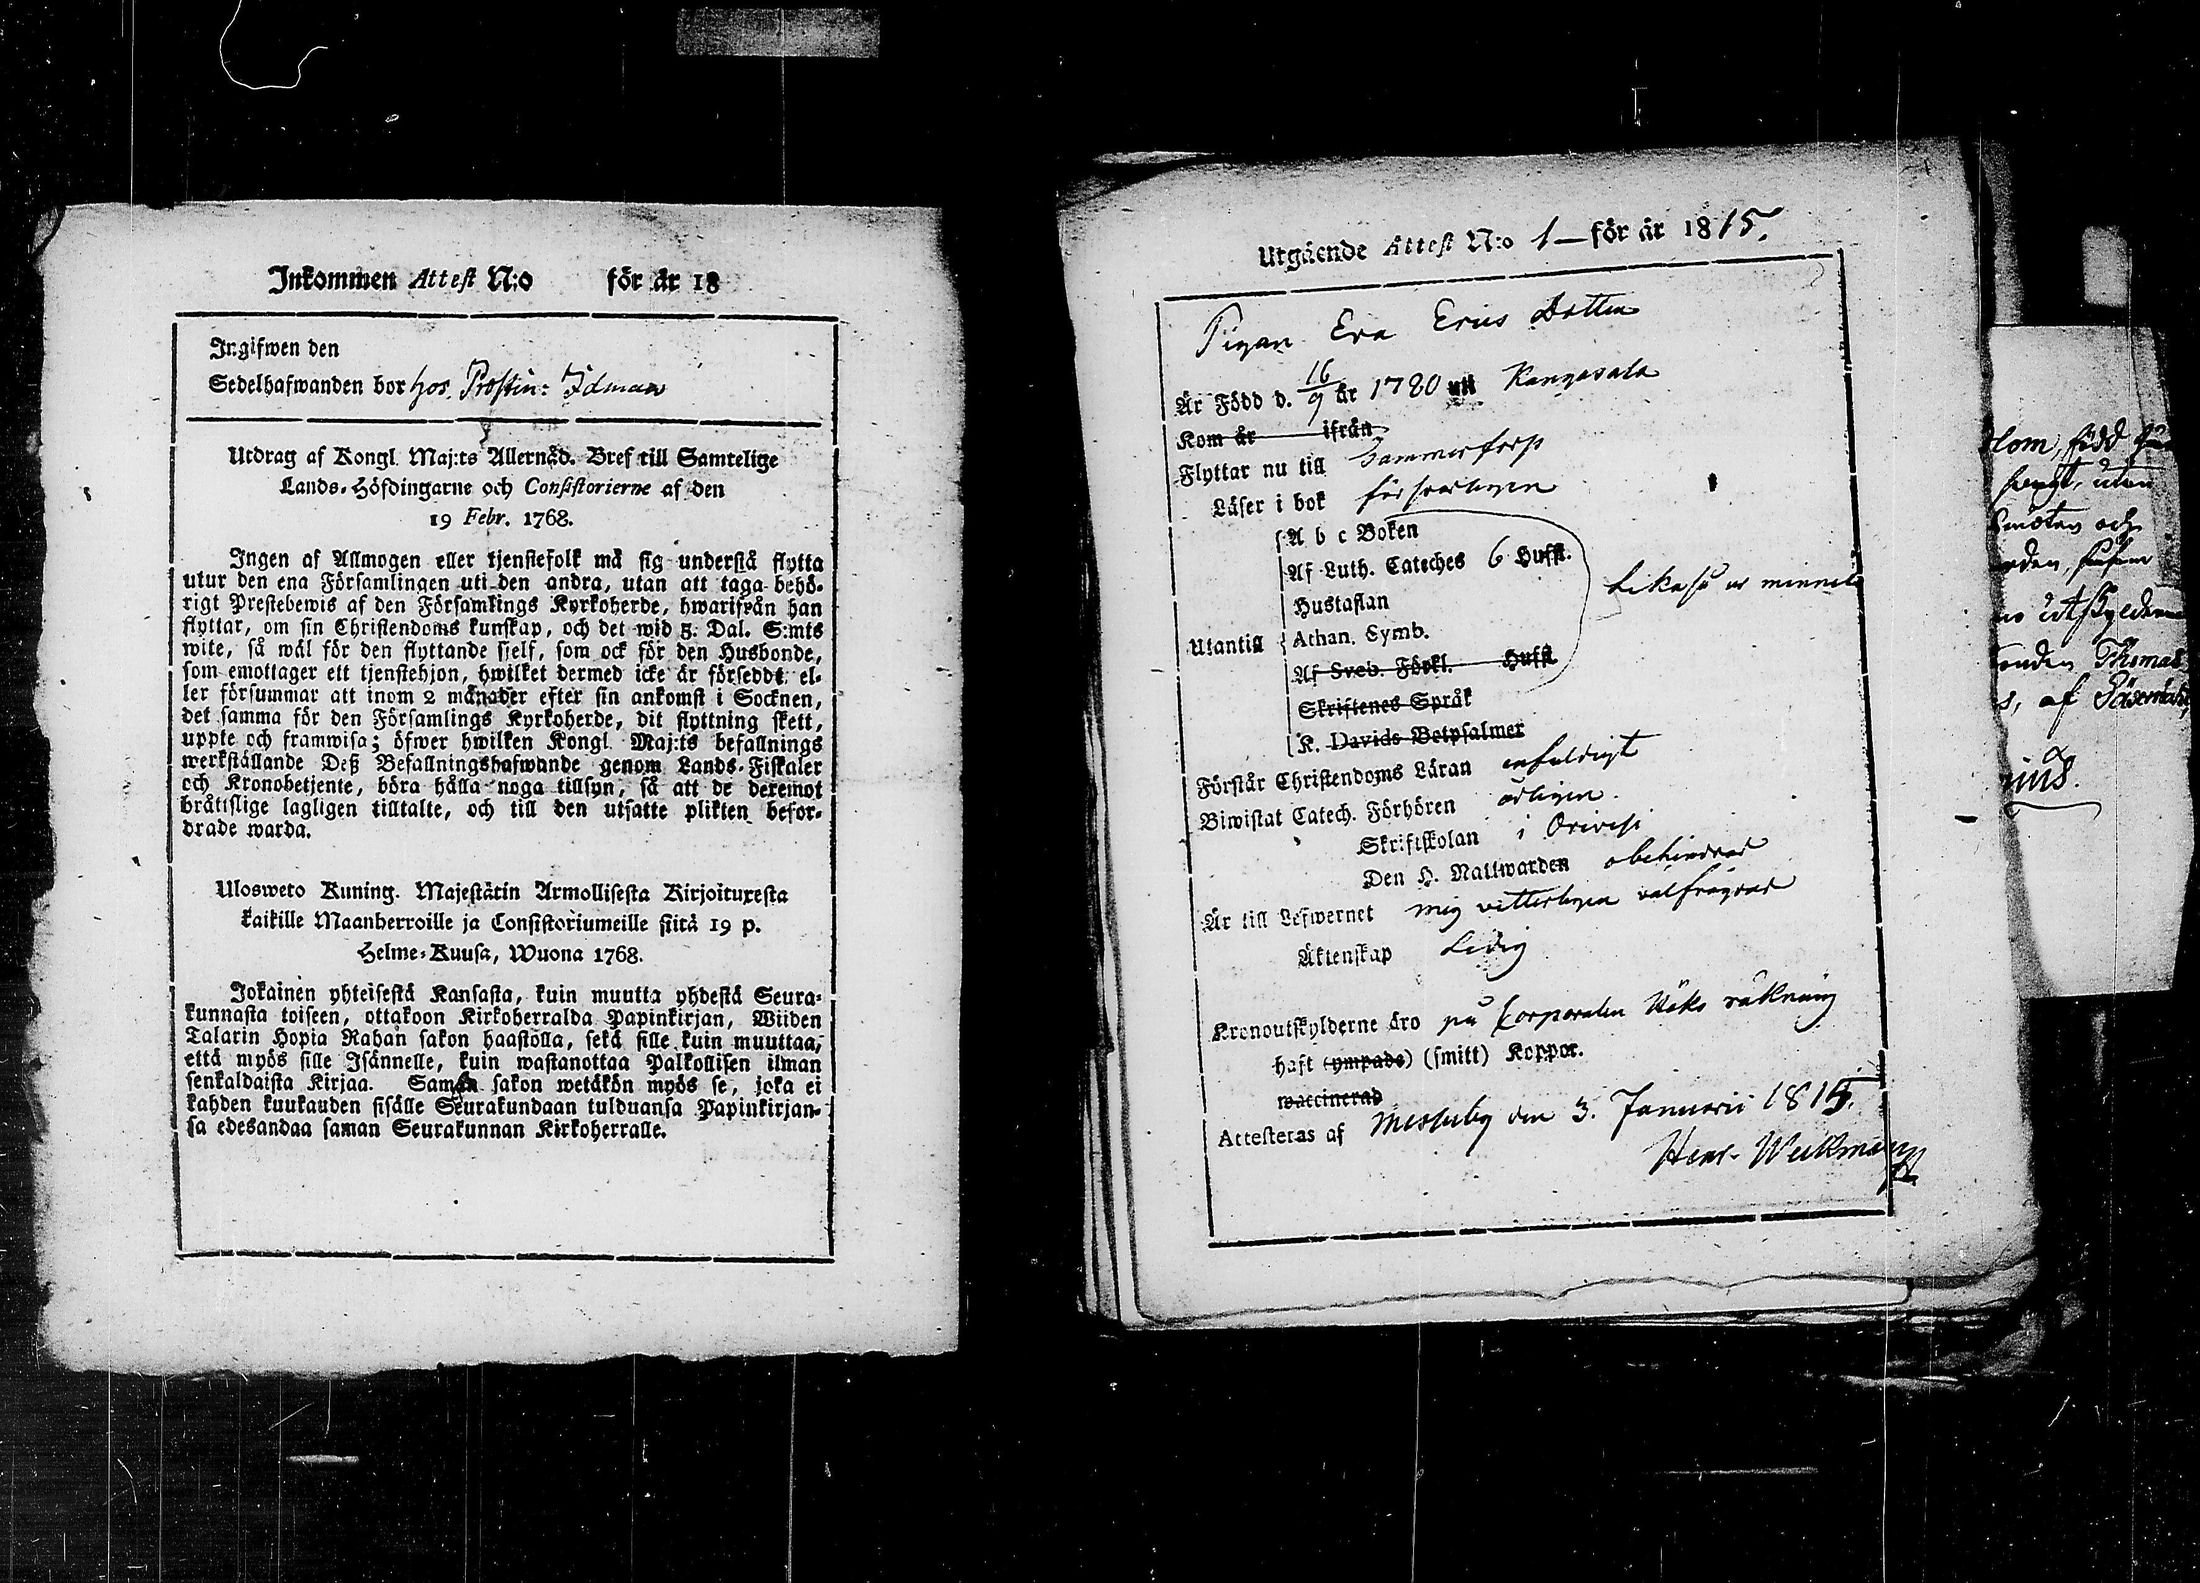 Inkommen Attest N:o för år 18
Ingifwen den
Sedelhafwanden bor hos Prostin: Idman
Utdrag af Kongl. Maj:ts Allernåd. Bref till Samtelige
Lands-Höfdingarne och Consistorierne af den
19 Febr. 1768.
Ingen af Allmogen eller tjenstefolk må sig understå flytta
utur den ena Församlingen uti den andra, utan att taga behö-
rigt Prestebewis af den Församlings Kyrkoherde, hwarifrån han
flyttar, om sin Christendoms kunskap, och det wid 5. Dal. S:mts
wite, så wäl för den flyttande sjelf, som ock för den Husbonde,
som emottager ett tjenstehjon, hwilket dermed icke är försedd: el-
ler försummar att inom 2 månader efter sin ankomst i Socknen,
det samma för den Församlings Kyrkoherde, dit flyttning skett,
uppte och framwisa; öfwer hwilken Kongl. Maj:ts befallnings
werkställande Deß Befallningshafwande genom Lands-Fiskaler
och Kronobetjente, böra hålla noga tillsyn, så att de deremot
bråttslige lagligen tilltalte, och till den utsatte plikten befor-
drade warda.
Ulosweto Kuning. Majestätin Armollisesta Kirjoituxesta
kaikille Maanherroille ja Consistoriumeille siitä 19 p.
Helme-Kuusa, Wuona 1768.
Jokainen yhteisestä Kansasta, kuin muutta yhdestä Seura-
kunnasta toiseen, ottakoon Kirkoherralda Papinkirjan, Wiiden
Talarin Hopia Rahan sakon haastolla, sekä sille kuin muuttaa,
että myös sille Isännelle, kuin wastanottaa Palkollisen ilman
senkaldaista Kirjaa. Saman sakon wetäkön myös se, joka ei
kahden kuukauden sisälle Seurakundaan tulduansa Papinkirjan-
sa edesandaa saman Seurakunnan Kirkoherralle.
Utgående Attest N:o 1 — för år 1815.
Pigan Eva Erics Dotter
Är Född d. 16/9 år 1780 uti Kangasala
Kom år ifrån
Flyttar nu till Tammerfors
Läser i bok försvarligen
A b c Boken
Af Luth. Cateches 6 Hufst.
Hustaflan
Utantill Athan. Symb.
Lika så ur minnet
Af Sveb. Förkl. Hufst
Skriftenes Språk
K. Davids Betpsalmer
Förstår Christendoms Läran enfaldigt
Biwistat Catech. Förhören årligen
Skriftskolan i Orivesi
Den H. Nattwarden obehindrad
Är till Lefwernet mig vitterligen välfrägdad
Äktenskap Ledig
Kronoutskylderne äro på Corporalen Röks räkning
haft (ympade) (smitt) Koppor.
waccinerad
Attesteras af Messuby den 3. Januarii 1815.
Henr. Weckman
född
utan
och
Utskylderne
Thomas
af